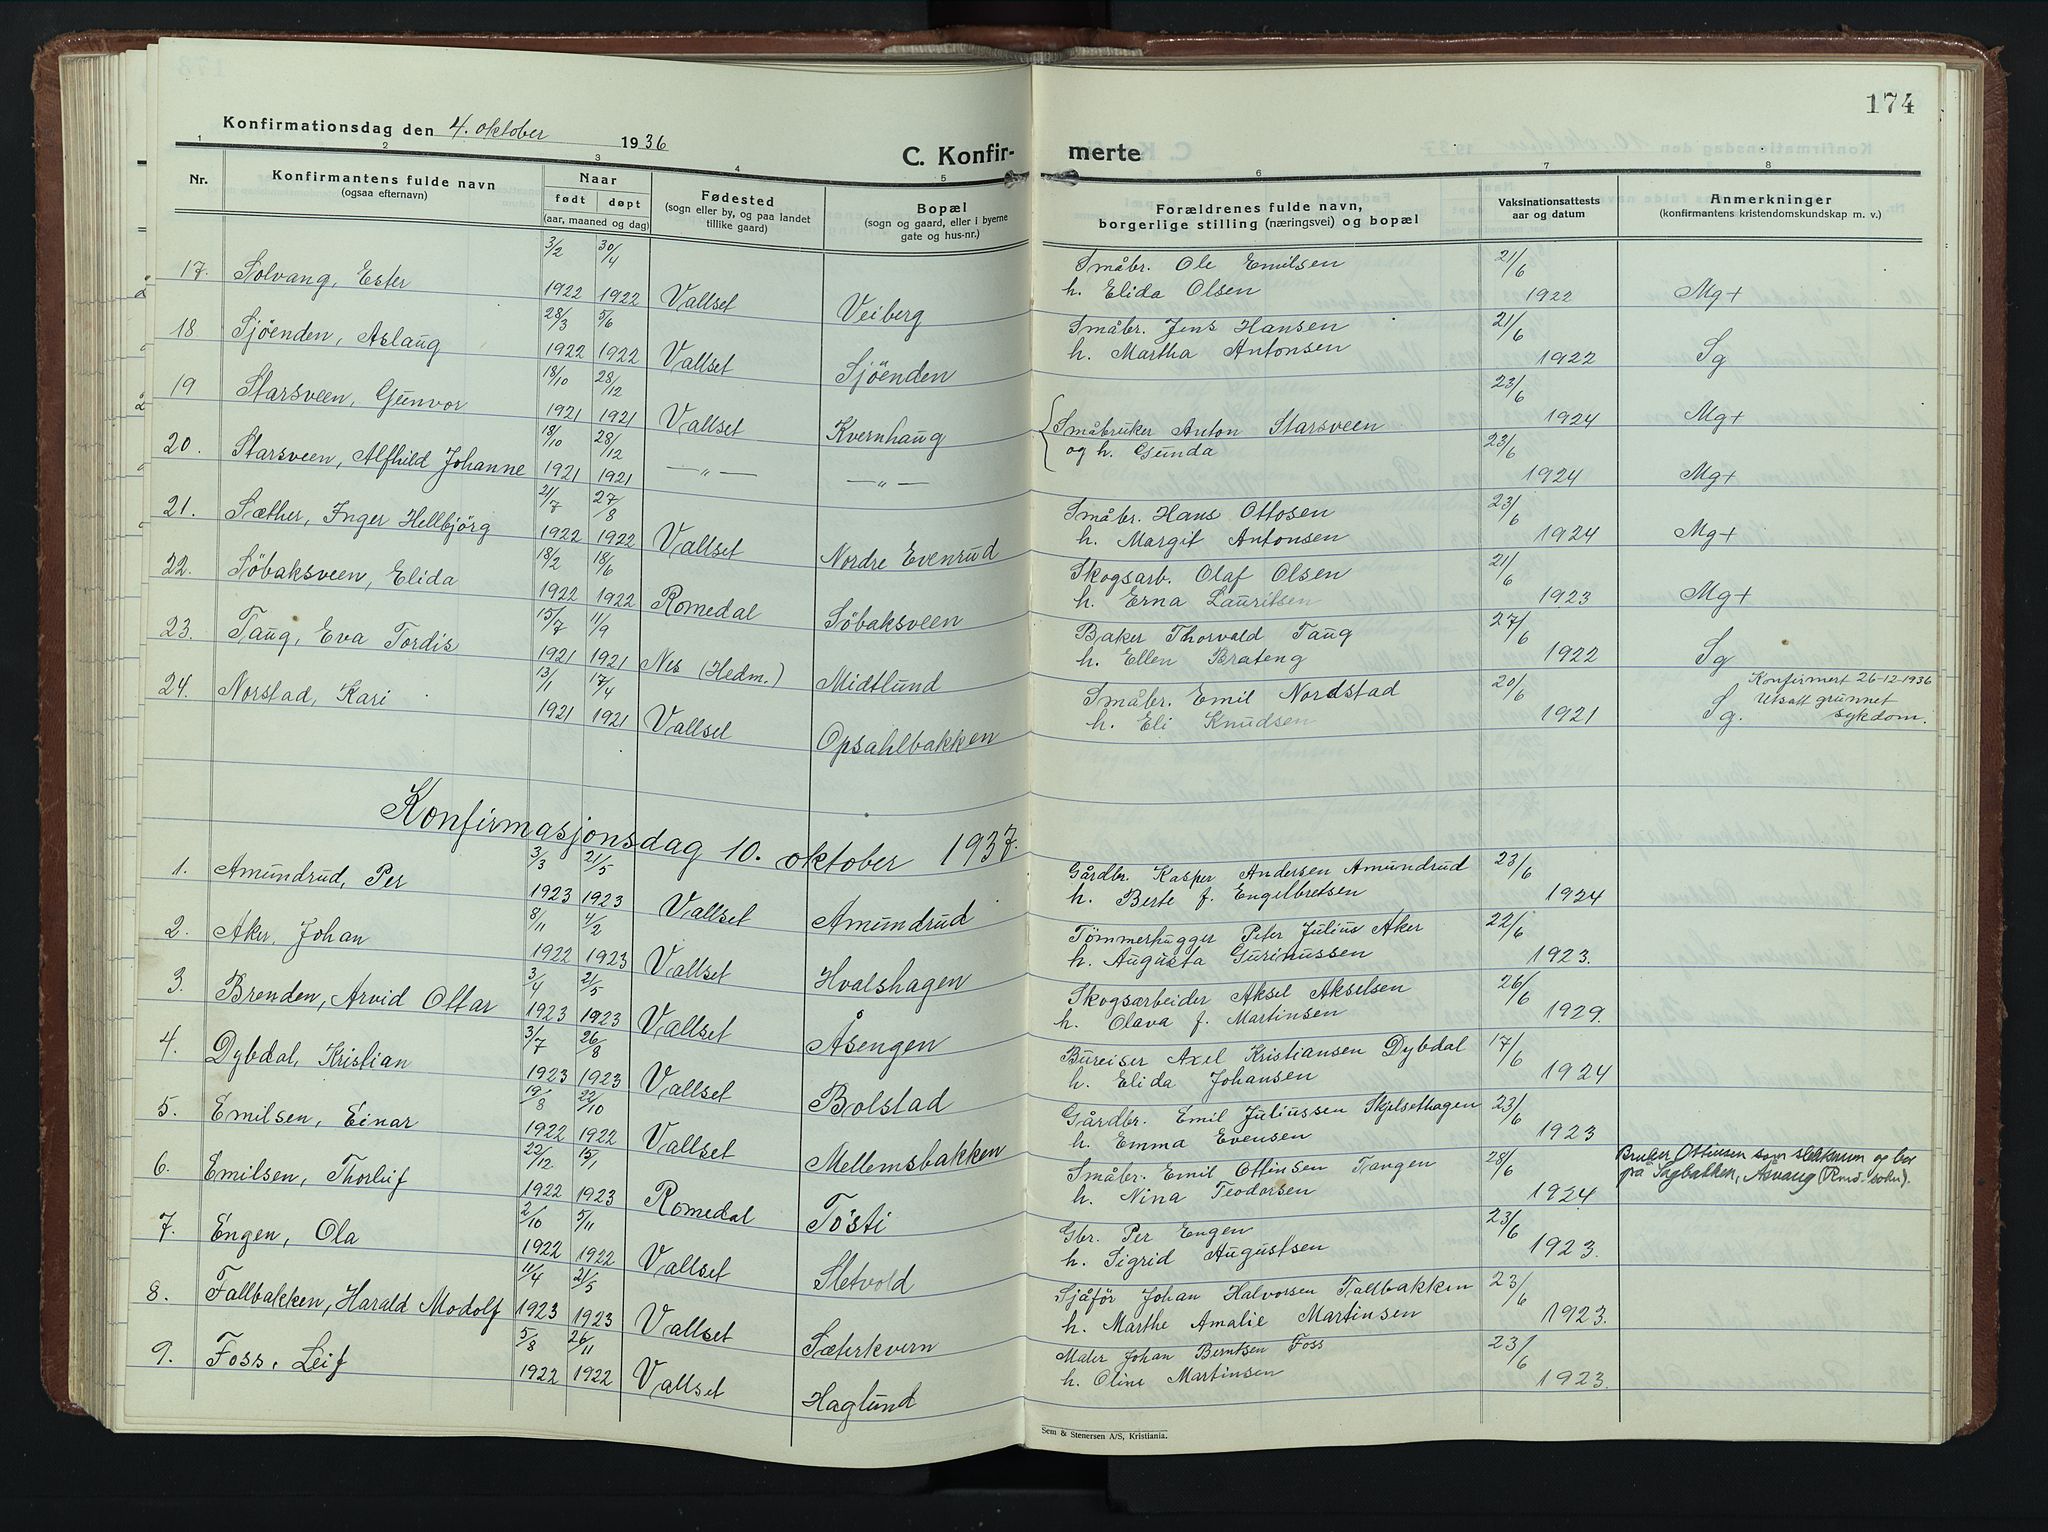 174
Konfirmationsdag den 4. oktober 1936
C. Konfir- merte
1 2 3 4 5 6 7 8
Nr. Konfirmantens fulde navn (ogsaa efternavn) Naar født døpt (aar, maaned og dag) Fødested (sogn eller by, og paa landet tillike gaard) Bopæl (sogn og gaard, eller i byerne gate og hus-nr.) Forældrenes fulde navn, borgerlige stilling (næringsvei) og bopæl Vaksinationsattests aar og datum Anmerkninger (konfirmantens kristendomskundskap m. v.)
17. Solvang, Ester 3/2 1922 30/4 1922 Vallset Veiberg Småbr. Ole Emilsen h. Elida Olsen 21/6 1922 Mg+
18 Sjöenden, Aslaug 28/3 1922 5/6 1922 Vallset Sjöenden Småbr. Jens Hansen h. Martha Antonsen 21/6 1922 Sg
19 Starsveen, Gunvor 18/10 1921 28/12 1921 Vallset Kvernhaug { Småbruker Anton Starsveen og h. Gunda 23/6 1924 Mg+
20. Starsveen, Alfhild Johanne 18/10 1921 28/12 1921 —„— —„— 23/6 1924 Mg+
21. Sæther, Inger Hellbjörg 21/7 1922 27/8 1922 Vallset Nordre Evenrud Småbr. Hans Ottosen h. Margit Antonsen 23/6 1924 Mg+
22. Söbaksveen, Elida 18/2 1922 18/6 1922 Romedal Söbaksveen Skogsarb. Olaf Olsen h. Erna Lauritsen 21/6 1923 Mg+
23. Taug, Eva Tordis 15/7 1921 11/9 1921 Nes (Hedm.) Midtlund Baker Thorvald Taug h. Ellen Brateng 27/6 1922 Sg
24. Norstad, Kari 13/1 1921 17/4 1921 Vallset Opsahlbakken Småbr. Emil Nordstad h. Eli Knudsen 20/6 1921 Sg. Konfirmert 26-12-1936 Utsatt grunnet sykdom.
Konfirmasjonsdag 10. oktober 1937.
1. Amundrud, Per 3/3 1923 21/5 1923 Vallset Amundrud Gårdbr. Kasper Andersen Amundrud h. Berte f. Engelbretsen 23/6 1924
2. Aker, Johan 8/11 1922 4/2 1923 Vallset Hvalshagen Tömmerhugger Peter Julius Aker h. Augusta Gurinussen 22/6 1923.
3. Brenden, Arvid Ottar 3/4 1923 21/5 1923 Vallset Åsengen Skogsarbeider Aksel Akselsen h. Olava f. Martinsen 26/6 1929.
4. Dybdal, Kristian 3/7 1923 26/8 1923 Vallset Bolstad Bureiser Axel Kristiansen Dybdal h. Elida Johansen 17/6 1924
5. Emilsen, Einar 19/8 1922 22/10 1922 Vallset Mellemsbakken Gårdbr. Emil Juliussen Skjelsethagen h. Emma Evensen 23/6 1923
6. Emilsen, Thorleif 22/12 1922 15/1 1923 Romedal Tösti Småbr. Emil Ottinsen Tangen h. Nina Teodorsen 28/6 1924 Bruker Ottinsen som slektsnavn og bor på Sagbakken, Åsvang (Rmd. sokn).
7. Engen, Ola 2/10 1922 5/11 1922 Vallset Sletvold Gbr. Per Engen h. Sigrid Augustsen 23/6 1923.
8. Fallbakken, Harald Modolf 11/4 1923 21/5 1923 Vallset Sæterkvern Sjåför Johan Halvorsen Fallbakken h. Marthe Amalie Martinsen 23/6 1923.
9. Foss, Leif 5/8 1922 26/11 1922 Vallset Haglund Maler Johan Berntsen Foss h. Oline Martinsen 23/6 1923.
Sem & Stenersen A/S, Kristiania.